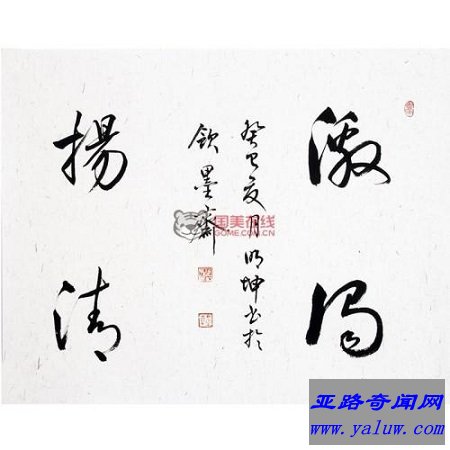 激
濁
癸巳夏月明坤书於
欽墨斋
揚
清
国美在线
GOME.COM.CN
亚路奇闻网
www.yaluw.com